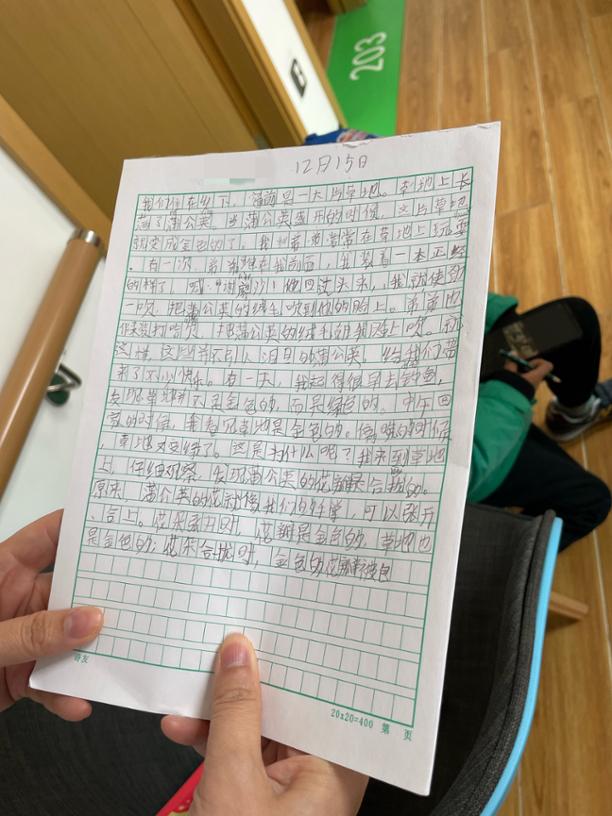 203
12月15日
我们住在乡下，窗前是一大片草地。草地上长
满了蒲公英。当蒲公英盛开的时候，这片草地
就变成金色的了。我和弟弟常常在草地上玩耍
。有一次，弟弟跑在我前面，我装着一本正经
的样子，喊：“谢廖沙！”他回过头来，我就使劲
一吹，把蒲公英的绒毛吹到他的脸上。弟弟也
假装打哈欠，把蒲公英的绒毛朝我脸上吹。就
这样，这些并不引人注目的蒲公英，给我们带
来了不少快乐。有一天，我起得很早去钓鱼，
发现草地并不是金色的，而是绿色的。中午回
家的时候，我看见草地是金色的。傍晚的时候
，草地又变绿了。这是为什么呢？我来到草地
上，仔细观察，发现蒲公英的花瓣是合拢的。
原来，蒲公英的花就像我们的手掌，可以张开
、合上。花朵张开时，花瓣是金色的，草地也
是金色的；花朵合拢时，金色的花瓣被包
20x20=400 第 页